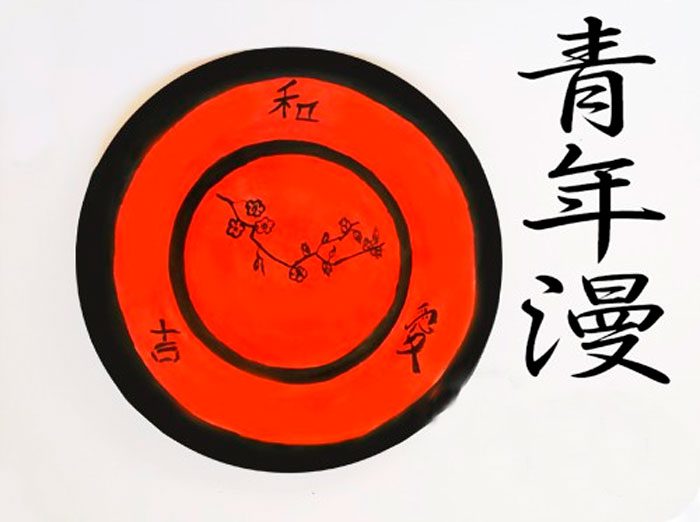 青年漫
和
吉